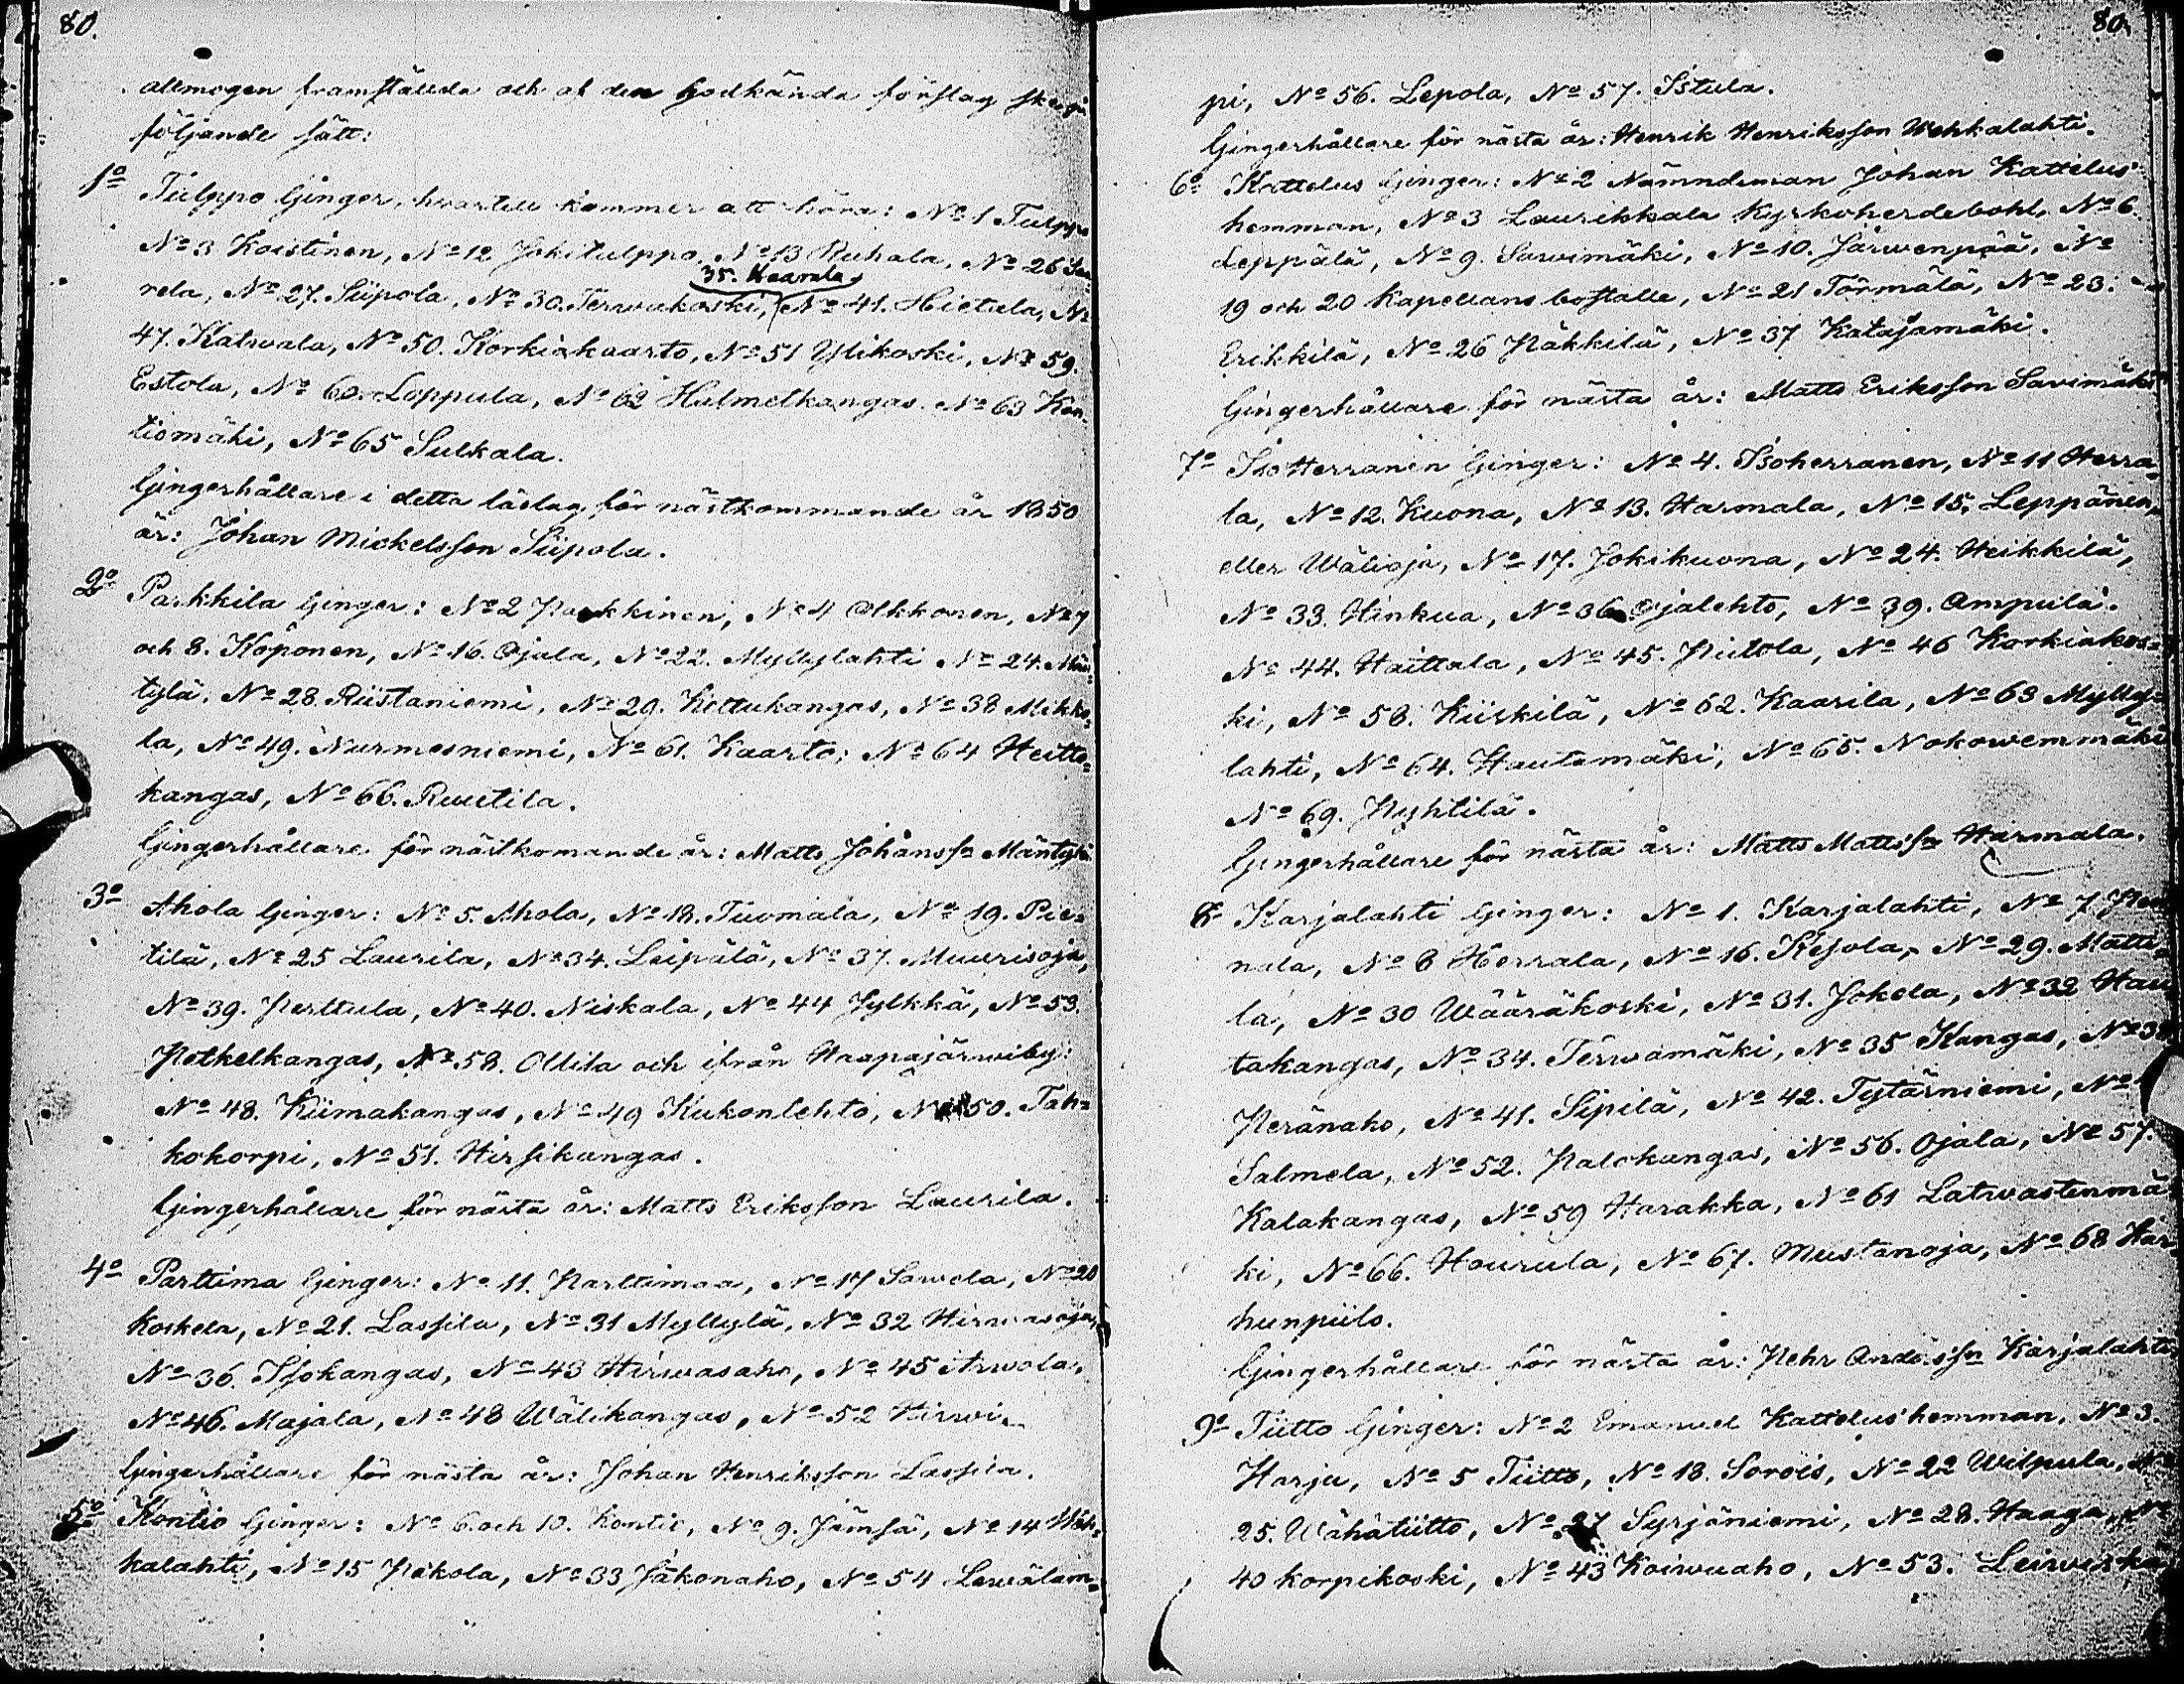 80.
allmogen framställda och af den godkända förslag på
följande sätt:
1o Tulppo Ginger, hvartill kommer att höra: No 1 Tulppo
No 3 Koistinen, No 12 Jokitulppo, No 13 Ruhala, No 26 Saa-
35. Kaarela
rela, No 27. Siipola, No 30. Terwakoski, No 41. Hietala, No
47. Katwala, No 50. Korkiakaarto, No 51 Ylikoski, No 59.
Estola, No 60. Loppula, No 62 Halmetkangas. No 63 Kon-
tiomäki, No 65 Sulkala.
Gingerhållare i detta läslag för nästkommande år 1850
är: Johan Mickelsson Siipola.
2o Parkkila Ginger: No 2 Parkkinen, No 4 Olkkonen, No 7
och 8. Köponen, No 16. Ojala, No 22. Myllylahti No 24. Män-
tylä, No 28. Riistaniemi, No 29. Kettukangas, No 38 Mikko-
la, No 49. Nurmesniemi, No 61. Kaarto, No 64 Heitto-
kangas, No 66. Ruutila.
Gingerhållare för nästkomande år: Matts Johansson Mäntylä
3o Ahola Ginger: No 5. Ahola, No 18. Tuomala, No 19. Pie-
tilä, No 25 Laurila, No 34. Leipälä, No 37. Muurisoja,
No 39. Perttula, No 40. Niskala, No 44 Jylkkä, No 53.
Potkelkangas, No 58. Ollila och ifrån Haapajärwiby:
No 48. Kiimakangas, No 49 Kukonlehto, No 50. Tah-
kokorpi, No 51. Hirsikangas.
Gingerhållare för nästa år: Matts Eriksson Laurila.
4o Parttima Ginger: No 11. Parttimaa, No 17 Sawola, No 20
Koskela, No 21. Lassila, No 31 Myllylä, No 32 Hirwasoja,
No 36. Isokangas, No 43 Hirwasaho, No 45 Arwola,
No 46. Majala, No 48 Wälikangas, No 52 Hirwi.
Gingerhållare för nästa år: Johan Henriksson Lassila.
5o Kontio Ginger: No 6. och 10. Kontio, No 9. Jämsä, No 14 Weh-
kalahti, No 15 Pakola, No 33 Jäkonaho, No 54 Lewälam-
80.
pi, No 56. Lepola, No 57. Istula.
Gingerhållare för nästa år: Henrik Henriksson Wehkalahti.
6o Kattelus Ginger: No 2 Nämndeman Johan Kattelus'
hemman, No 3 Laurikkala Kyrkoherdebohl, No 6.
Leppälä, No 9. Sawimäki, No 10. Järwenpää, No
19 och 20 Kapellans boställe, No 21 Törmälä, No 23.
Erikkilä, No 26 Päkkilä, No 37 Katajamäki.
Gingerhållare för nästa år: Matts Eriksson Savimäki
7o Iso Herranen Ginger: No 4. Isoherranen, No 11 Herra-
la, No 12. Kuona, No 13. Harmala, No 15. Leppänen,
eller Wälioja, No 17. Jokikuona, No 24. Heikkilä,
No 33. Hinkua, No 36 Ojalehto, No 39. Ampuila.
No 44. Haittala, No 45. Piitola, No 46 Korkiakos-
ki, No 58. Kiiskilä, No 62. Kaarila, No 63 Mylly-
lahti, No 64. Hautamäki, No 65. Nokowemmäki
No 69. Pyhtilä.
Gingerhållare för nästa år: Matts Mattsson Harmala.
8o Karjalahti Ginger: No 1. Karjalahti, No 7
nala, No 8 Herrala, No 16. Kesola, No 29. Matti-
la, No 30 Wääräkoski, No 31. Jokela, No 32 Hau
takangas, No 34. Terwamäki, No 35 Kangas, No 38
Peränaho, No 41. Sipilä, No 42. Tytärniemi, No
Salmela, No 52. Palokangas, No 56. Ojala, No 57.
Kalakangas, No 59 Harakka, No 61 Latwastenmä-
ki, No 66. Hourula, No 67. Mustanoja, No 68 Kar-
hunpiilo.
Gingerhållare för nästa år: Pehr Anderssson Karjalahti
9o Tiitto Ginger: No 2 Emanuel Kattelus' hemman, No 3.
Harju, No 5 Tiitto, No 18. Sorois, No 22 Wilpula, No
25. Wähätiitto, No 27 Syrjäniemi, No 28. Haaga, No
40 Korpikoski, No 43 Koiwuaho, No 53. Leiwiskä